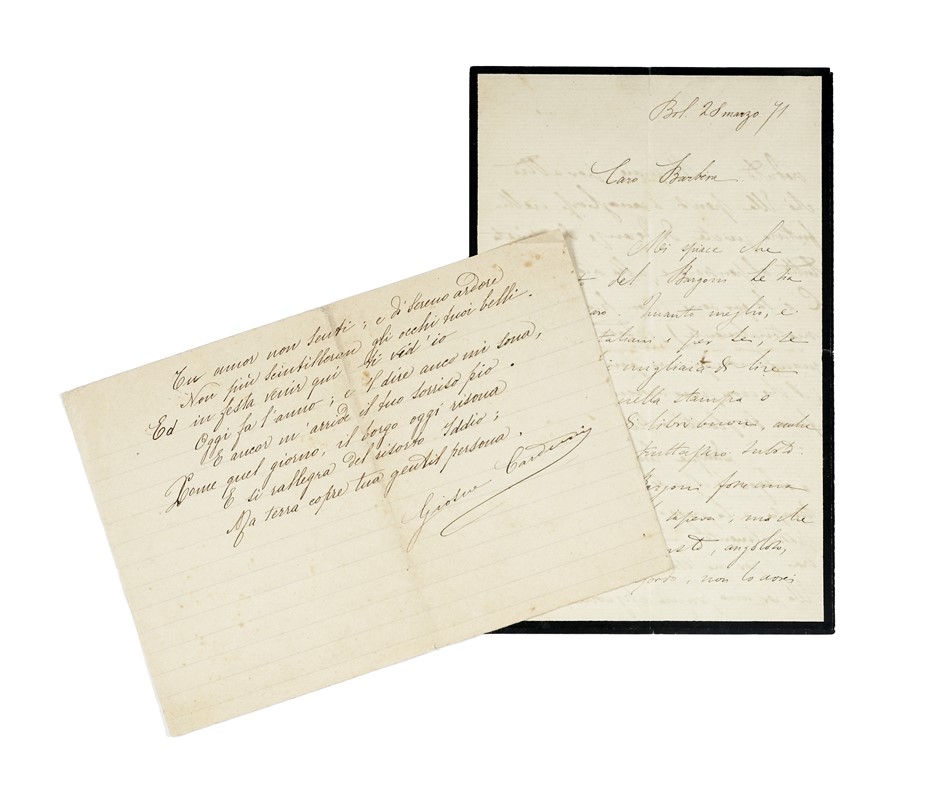 Tu amor non senti; e di sereno ardore
Non più scintilleran gli occhi tuoi belli.
Ed in festa venir qui ti vid'io
Oggi fa l'anno; e il dire anco mi sona,
E ancor m'arride il tuo sorriso pio
Come quel giorno, il borgo oggi risona
E si rallegra del risorto Iddio;
Ma terra copre tua gentil persona.
Giosue Carducci
Bol. 28 marzo 71
Caro Barbèra
Mi spiace che
del Bargoni le ha
Quanto meglio, e
italiani e per lei, se
migliaia di lire
nella stampa o
di libri buoni, anche
fruttassero subito.
Bargoni fosse una
sapeva; ma che
angoloso,
non lo avrei